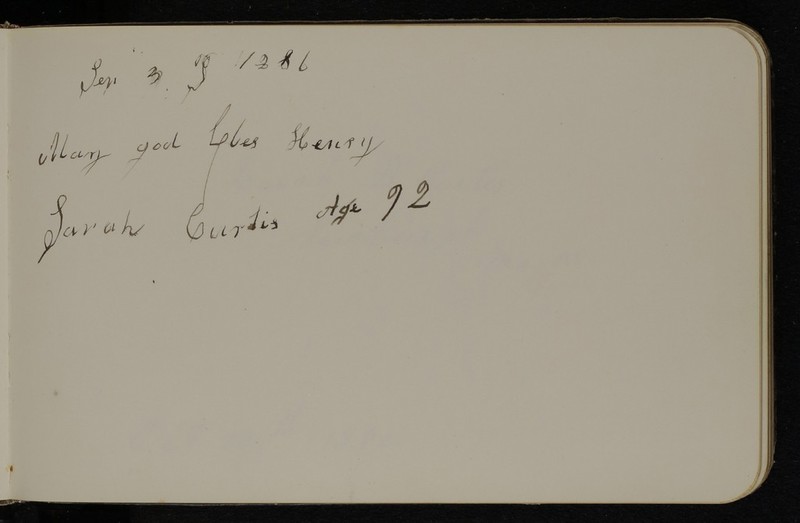 Sep 3 1286
May god bles Henry
Sarah Curtis Age 92